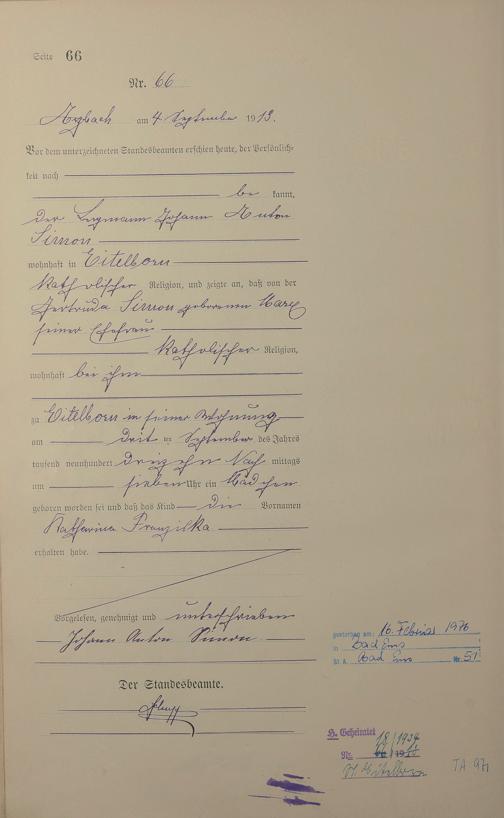 Seite 66
Nr. 66
Arzbach am 4 September 1913.
Vor dem unterzeichneten Standesbeamten erschien heute, der Persönlich-
keit nach
be kannt,
der Johann Anton
Simon
wohnhaft in Eitelborn
katholischer Religion, und zeigte an, daß von der
Gertruda Simon geborenen Marx
seiner Ehefrau
katholischer Religion,
wohnhaft bei ihm
zu Eitelborn in seiner Wohnung
am drit en September des Jahres
tausend neunhundert dreizehn Nach mittags
um sieben Uhr ein Mädchen
geboren worden sei und daß das Kind die Vornamen
Katharina Franziska
erhalten habe.
Vorgelesen, genehmigt und unterschrieben
Johann Anton Simon
Der Standesbeamte.
gestorben am: 16. Februar 1976
in Bad Ems
St A. Bad Ems Nr. 51
H. Geheiratet
18/1934
Nr.
Eitelborn
TA 971